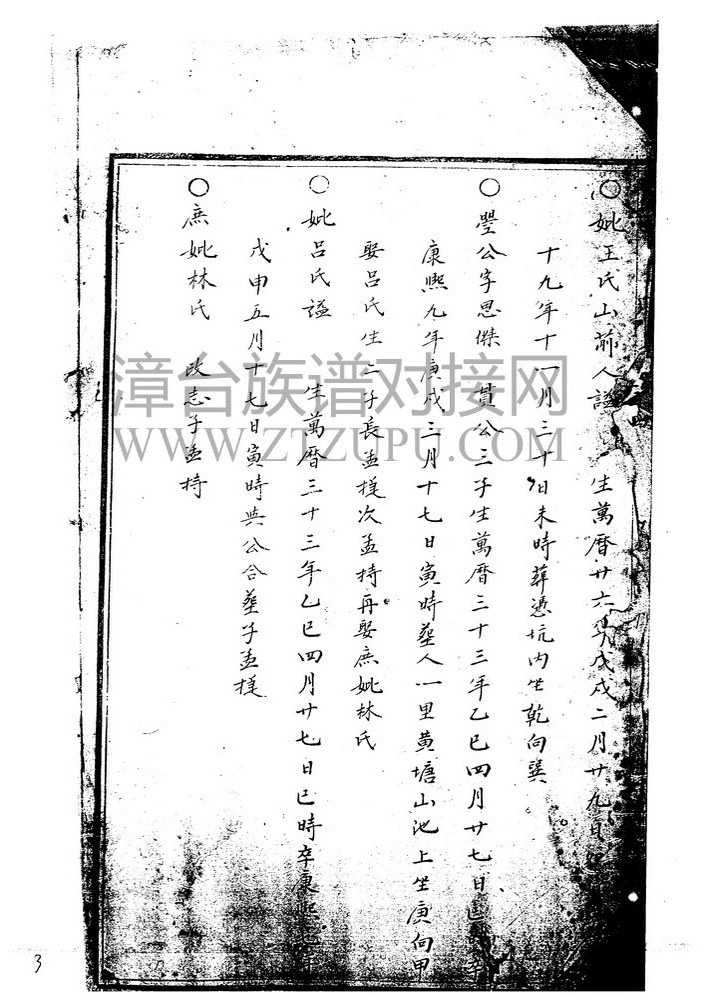 ○妣王氏山前人諡 生萬曆廿六年戊戌二月廿九日
十九年十一月三十日未時葬憑坑内坐乾向巽
○璺公字思傑 貫公三子生萬曆三十三年乙巳四月廿七日巳
康熙九年庚戌三月十七日寅時塟人一里黄塘山池上坐庚向甲
娶呂氏生二子長孟挺次孟持再娶庶妣林氏
○妣呂氏諡 生萬曆三十三年乙巳四月廿七日巳時卒康熙七年
戊申五月十七日寅時與公合塟子孟挺
○庶妣林氏 改志子孟持
漳台族谱对接网
WWW.ZTZUPU.COM
3